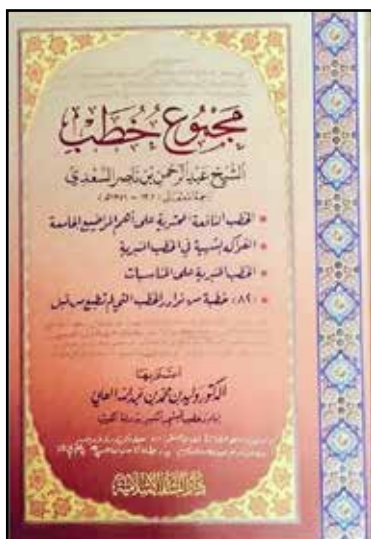 مجموع خطب
الشيخ عبد الرحمن بن ناصر السعدي
الخطب النافعة المحتوية على أهم المواضيع الجامعة
الفواكه الشهية في الخطب المنبرية
الخطب المنبرية على المناسبات
(٨٢) خطبة من نوادر الخطب التي لم تطبع من قبل
اعتنى بها
الدكتور وليد بن محمد بن عبد الله العلي
دار البشائر الإسلامية